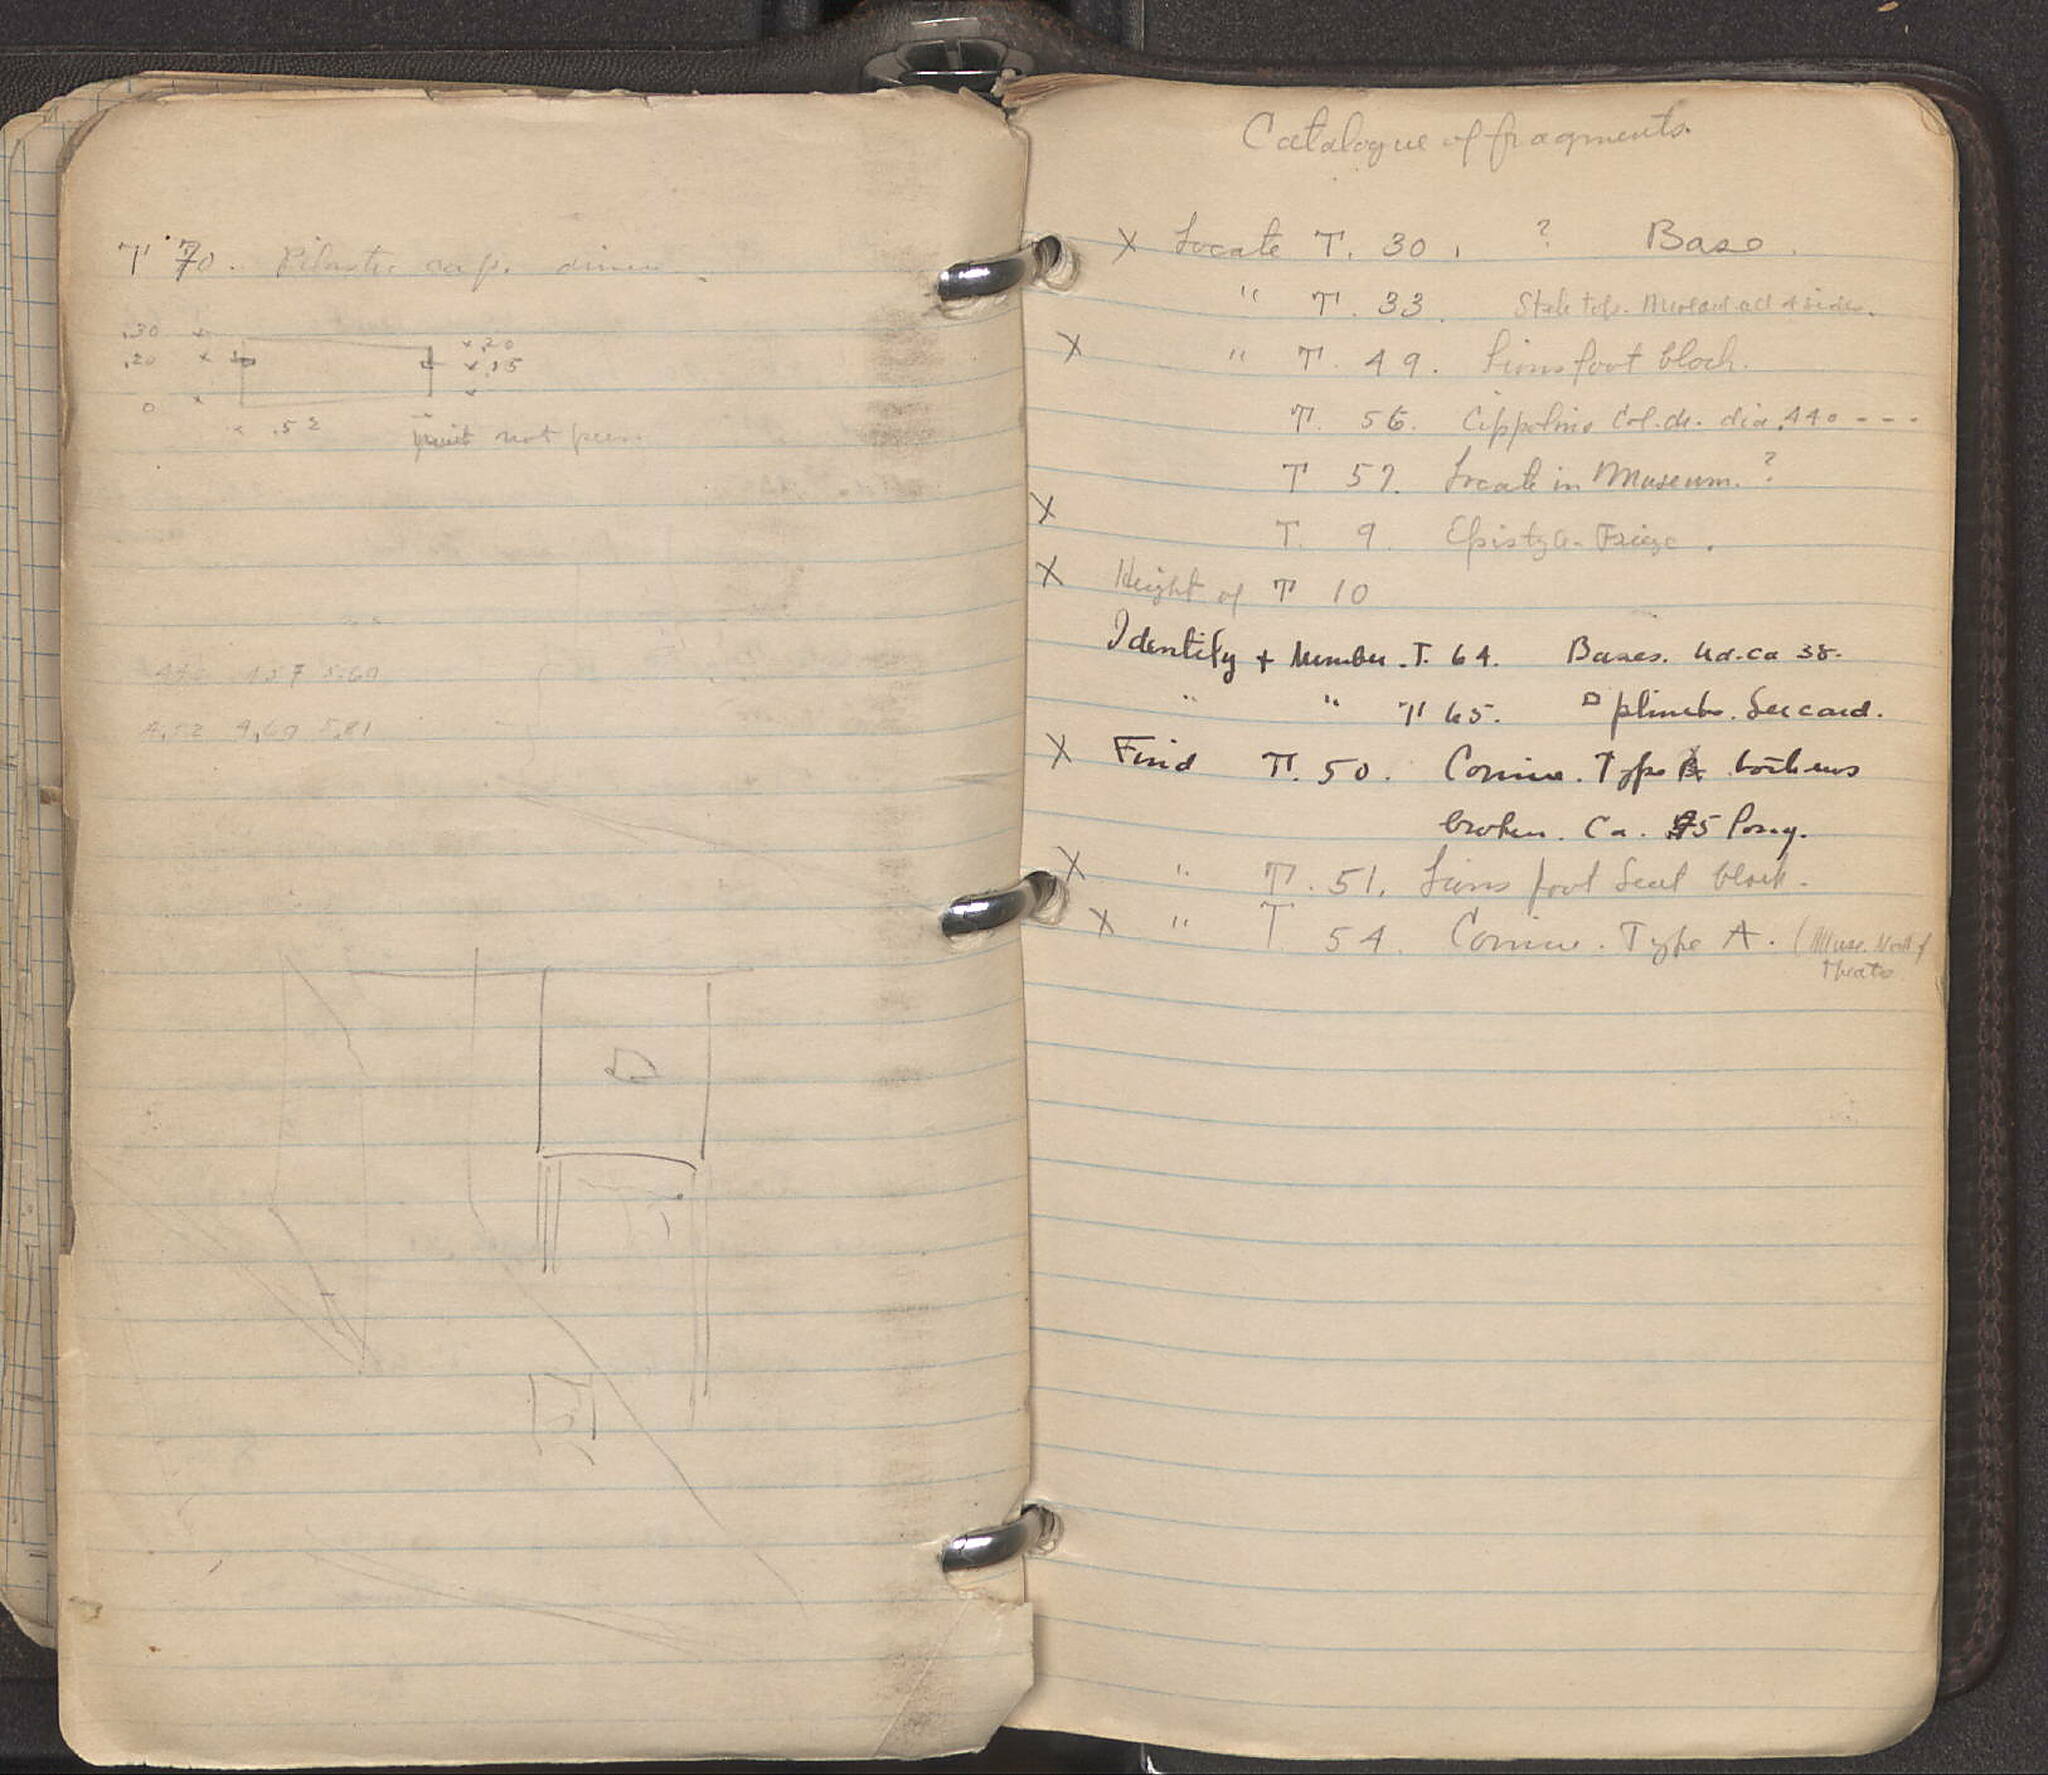 T 70. Pilaster cap. dimen.
.30
.20
0
.20
.15
.52
not
4.57 5.69
4.52 4.60 5.81
Catalogue of fragments.
X Locate T. 30. ? Base.
" T. 33. Stele top. all 4 sides.
X " T. 49. Lions foot block.
T. 56. Cippolino Col. dr. dia .440 - - -
T 57. Locate in Museum. ?
X T. 9 Epistyle-Frieze.
X Height of T 10
Identify + Number. T. 64. Bases. ca 38.
" " T 65. □ plinths. See card.
X Find T. 50. Cornice. Type both ends
broken. Ca. 95 long.
X " T. 51. Lions foot Seat block.
X " T 54. Cornice. Type A. (Muse. North of
Theatre